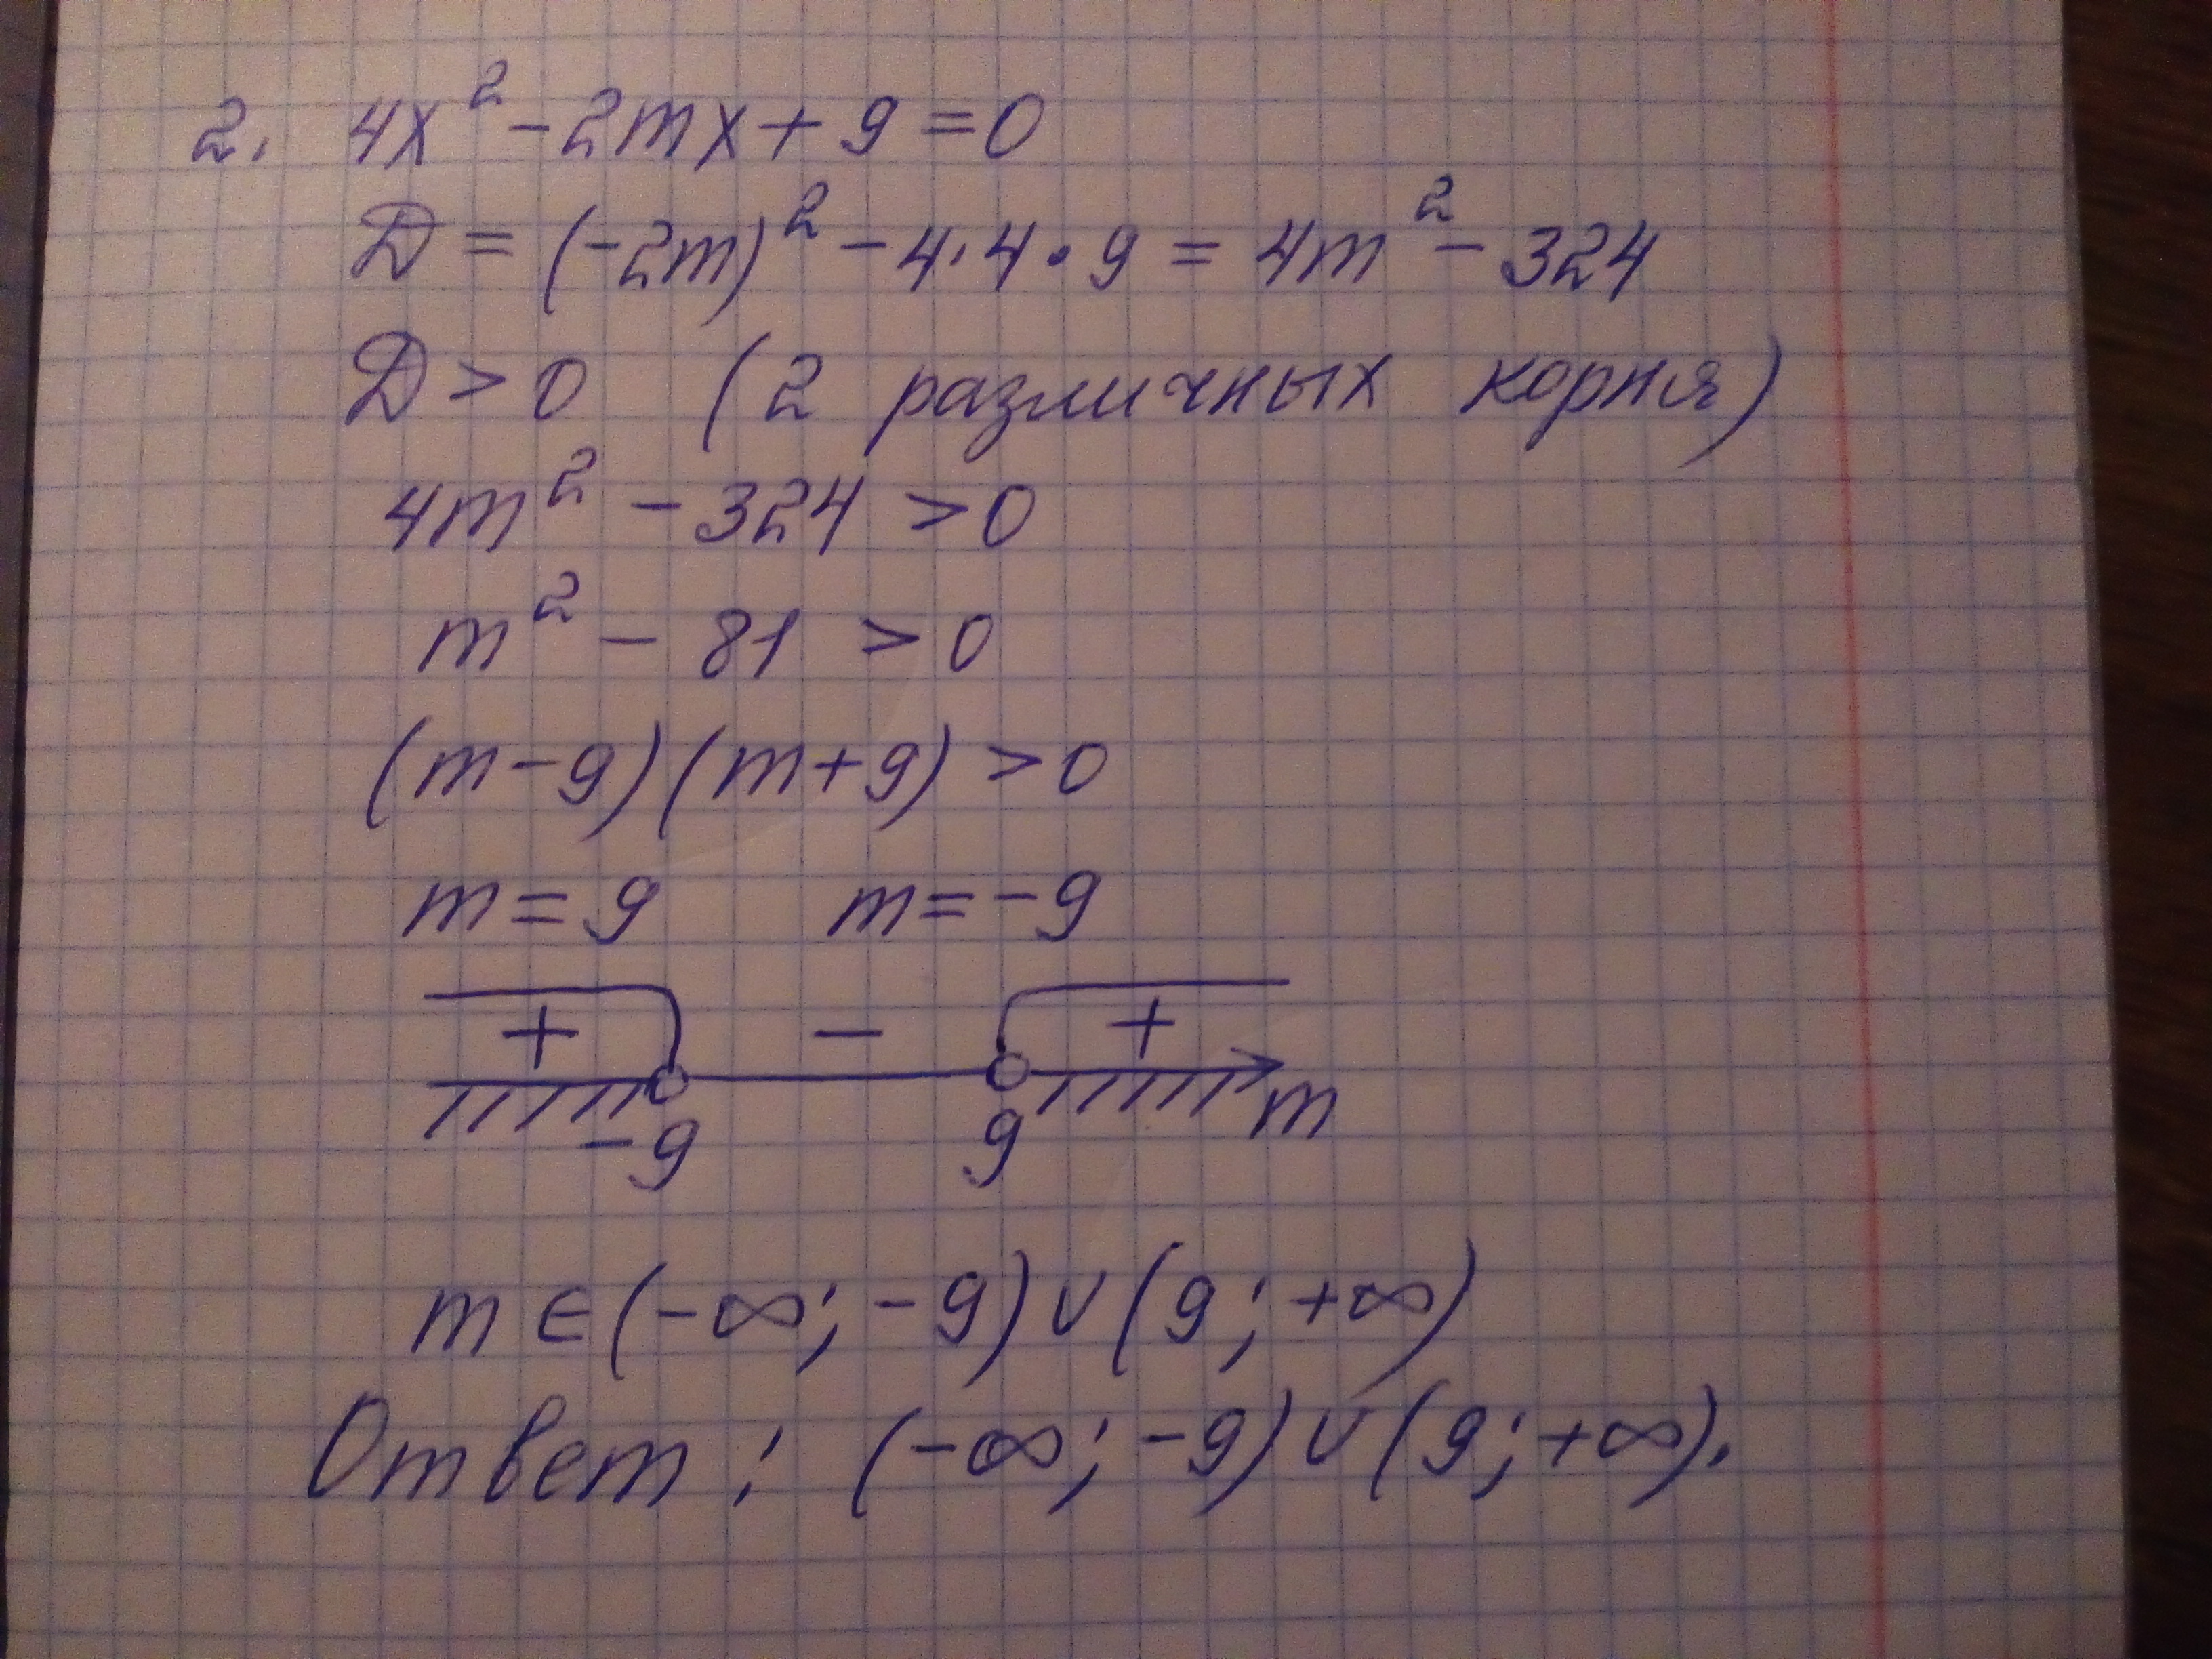 2. 4x² - 2mx + 9 = 0
D = (-2m)² - 4·4·9 = 4m² - 324
D > 0 (2 различных корня)
4m² - 324 > 0
m² - 81 > 0
(m-9)(m+9) > 0
m = 9 m = -9
+ - +
-9 9 m
m ∈ (-∞; -9) ∪ (9; +∞)
Ответ: (-∞; -9) ∪ (9; +∞).